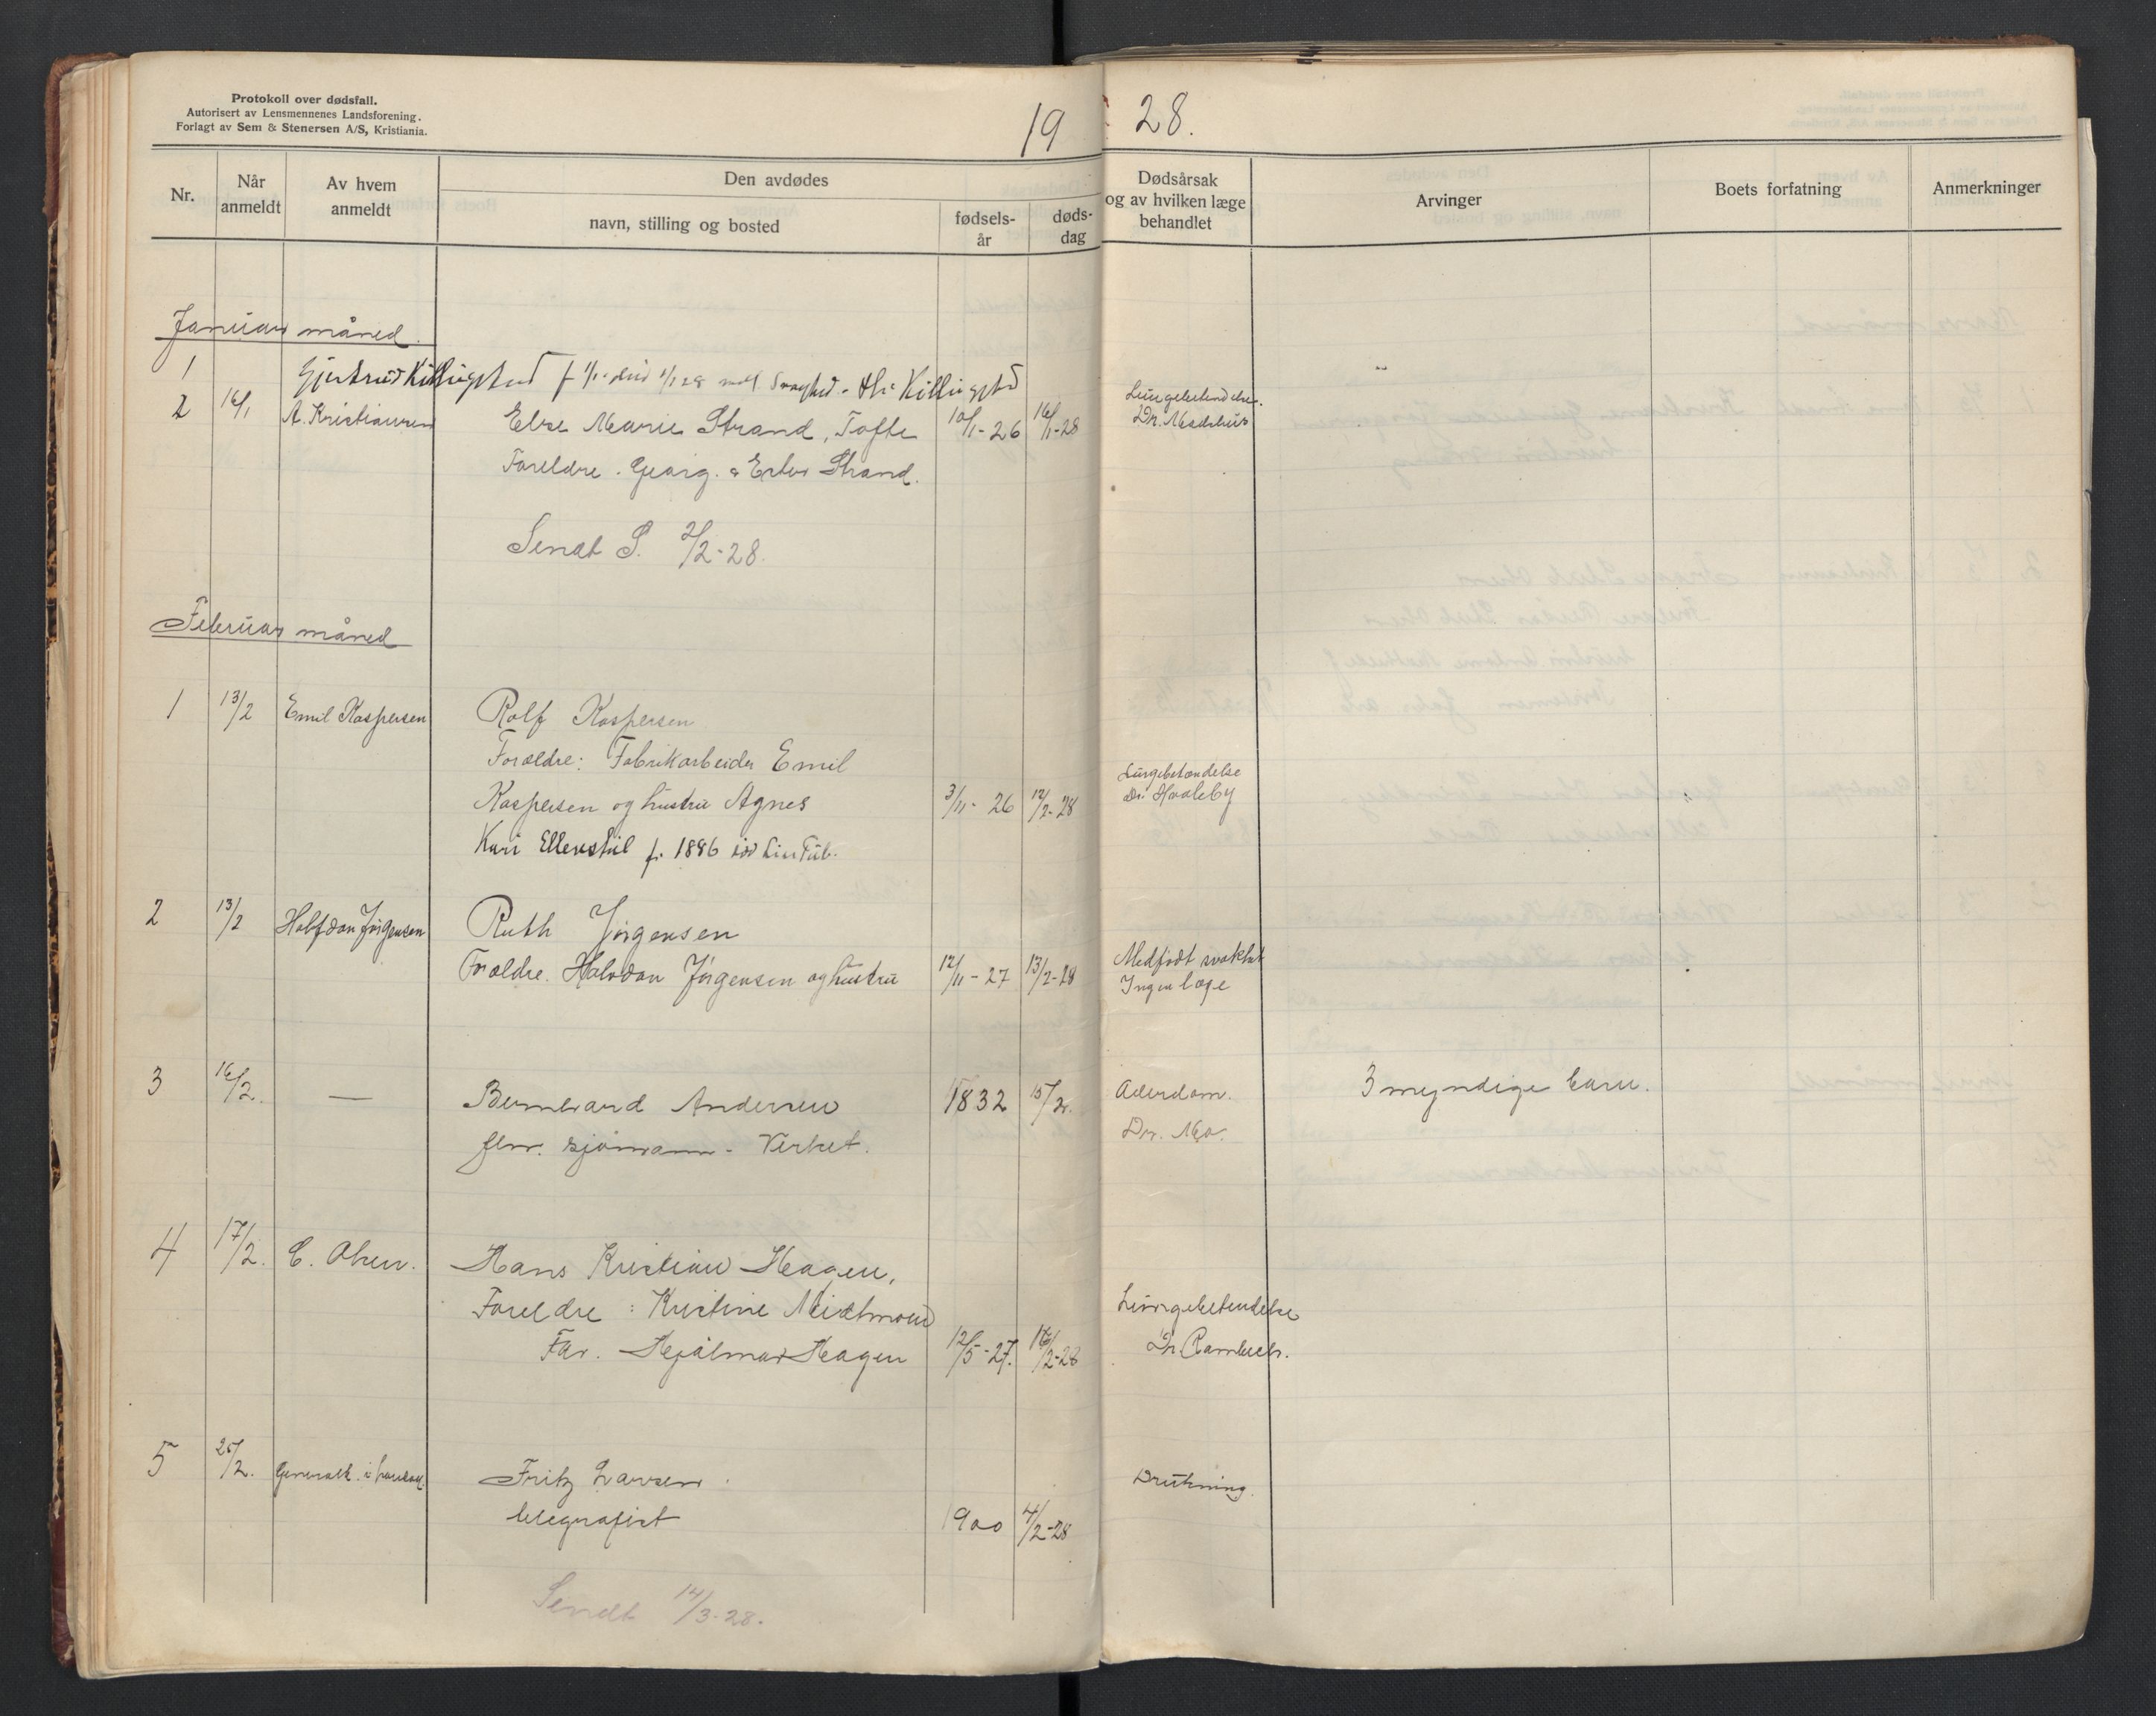 Protokoll over dødsfall.
Autorisert av Lensmennenes Landsforening.
Forlagt av Sem & Stenersen A/S, Kristiania.
19 28.
Nr. Når anmeldt Av hvem anmeldt Den avdødes navn, stilling og bosted fødsels-år døds-dag Dødsårsak og av hvilken læge behandlet Arvinger Boets forfatning Anmerkninger
Januar måned.
1 Gjertrud Killingstad f 1/1 - død 1/1 28 Killingstad
2 16/1 A. Kristiansen Else Marie Strand, Tofte 10/1-26 16/1-28 Lungebetendelse.
Dr. Madshus
Foreldre. Georg. & Ester Strand.
Sendt S. 2/2-28.
Februar måned
1 13/2 Emil Kaspersen Rolf Kaspersen
Foreldre: Fabrikarbeider Emil
Lungebetændelse
Kaspersen og hustru Agnes 3/11-26 12/2-28 Dr. Haaleby
Kari f. 1886
2 13/2 Halfdan Jørgensen Ruth Jørgensen
Foreldre. Halvdan Jørgensen og hustru 12/11-27 13/2-28 Medfødt svakhet
Ingen læge
3 16/2. — Bernhard Andersen 1832 15/2. Alderdom. 3 myndige barn.
fhv. sjømann - Verket. Dr. Mo.
4 17/2. C. Olsen. Hans Kristian Hagen,
Foreldre: Kristine Lungebetendelse
Far. Hjalmar Hagen 12/5-27. 16/2-28 Dr. Rambech.
5 25/2. Fritz Larsen. Drukning.
telegrafist 1900 4/2-28
Sendt 14/3-28.